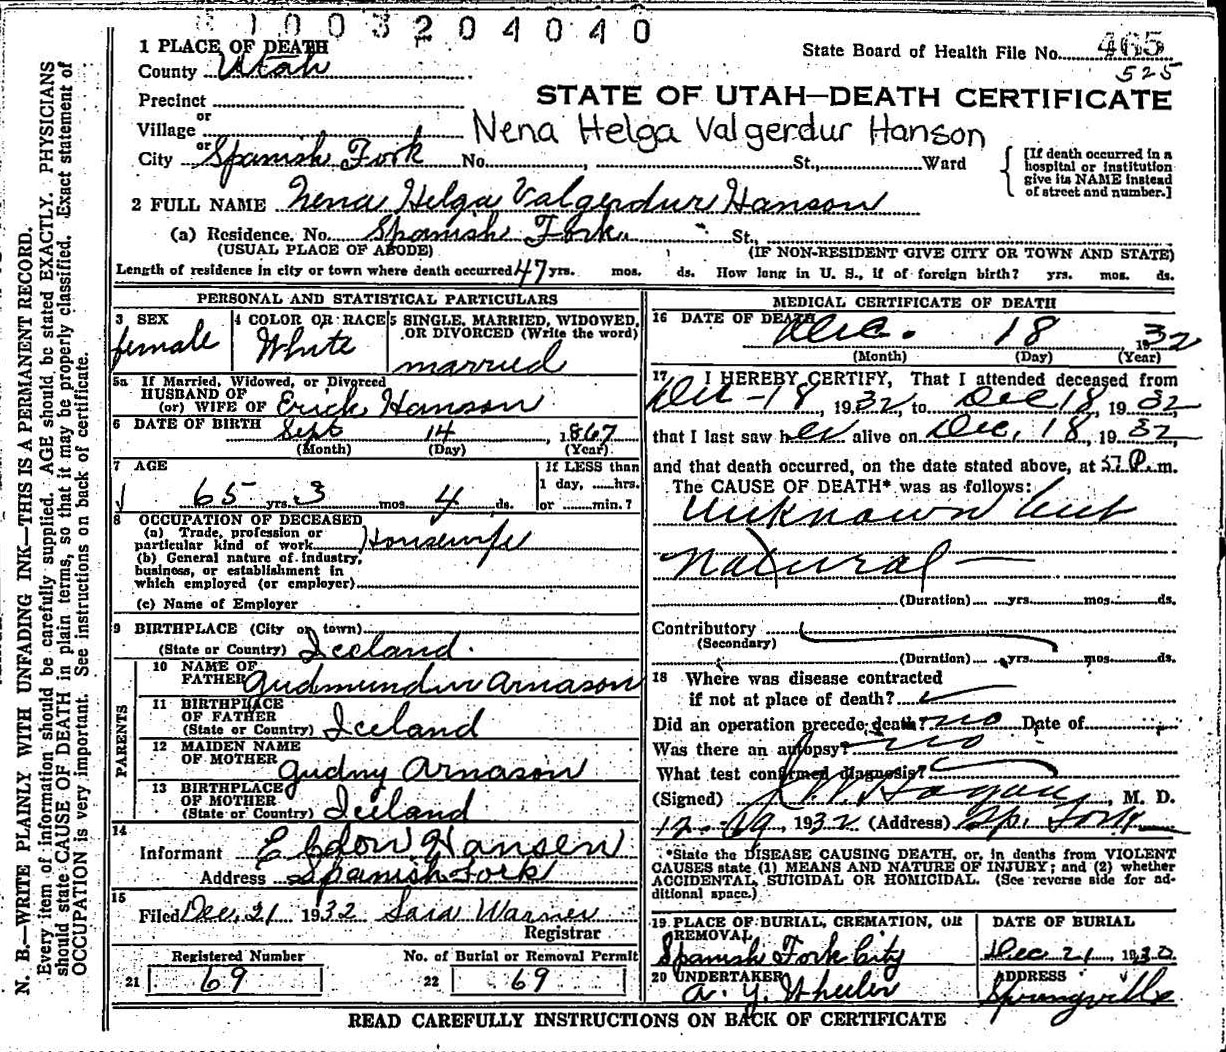 8 1 0 0 3 2 0 4 0 4 0
State Board of Health File No. 465
525
1 PLACE OF DEATH
County Utah
Precinct
or
Village
or
City Spanish Fork No. , St., Ward
STATE OF UTAH—DEATH CERTIFICATE
Nena Helga Valgerdur Hanson
[If death occurred in a
hospital or institution
give its NAME instead
of street and number.]
2 FULL NAME Nena Helga Valgerdur Hanson
(a) Residence. No. Spanish Fork. St.,
(USUAL PLACE OF ABODE) (IF NON-RESIDENT GIVE CITY OR TOWN AND STATE)
Length of residence in city or town where death occurred 47 yrs. mos. ds. How long in U. S., if of foreign birth? yrs. mos. ds.
PERSONAL AND STATISTICAL PARTICULARS
3 SEX
female
4 COLOR OR RACE
White
5 SINGLE, MARRIED, WIDOWED,
OR DIVORCED (Write the word)
married
5a If Married, Widowed, or Divorced
HUSBAND OF
(or) WIFE OF Erick Hanson
6 DATE OF BIRTH Sept 14, 1867
(Month) (Day) (Year)
7 AGE
65 yrs. 3 mos. 4 ds.
If LESS than
1 day, ......hrs.
or ........min.?
8 OCCUPATION OF DECEASED
(a) Trade, profession or
particular kind of work Housewife
(b) General nature of industry,
business, or establishment in
which employed (or employer)
(c) Name of Employer
9 BIRTHPLACE (City or town)
(State or Country) Iceland.
PARENTS
10 NAME OF
FATHER Gudmundur Arnason
11 BIRTHPLACE
OF FATHER
(State or Country) Iceland
12 MAIDEN NAME
OF MOTHER Gudny Arnason
13 BIRTHPLACE
OF MOTHER
(State or Country) Iceland
14
Informant E Eldon Hansen
Address Spanish Fork
15
Filed Dec. 21 1932 Sara Warner
Registrar
Registered Number No. of Burial or Removal Permit
21 69 22 69
MEDICAL CERTIFICATE OF DEATH
16 DATE OF DEATH Dec. 18, 1932
(Month) (Day) (Year)
17 I HEREBY CERTIFY, That I attended deceased from
Dec - 18, 1932, to Dec 18, 1932
that I last saw her alive on Dec. 18, 1932
and that death occurred, on the date stated above, at P.m.
The CAUSE OF DEATH* was as follows:
Unknown but
Natural —
(Duration) yrs. mos. ds.
Contributory
(Secondary)
(Duration) yrs. mos. ds.
18 Where was disease contracted
if not at place of death?
Did an operation precede death? no Date of
Was there an autopsy? no
What test confirmed diagnosis?
(Signed) J. W. Hagan, M. D.
12-19 1932 (Address) Sp. Fork
*State the DISEASE CAUSING DEATH, or, in deaths from VIOLENT
CAUSES state (1) MEANS AND NATURE OF INJURY; and (2) whether
ACCIDENTAL, SUICIDAL OR HOMICIDAL. (See reverse side for ad-
ditional space.)
19 PLACE OF BURIAL, CREMATION, OR
REMOVAL
Spanish Fork City
DATE OF BURIAL
Dec 21, 1932
20 UNDERTAKER
A. Y. Wheeler
ADDRESS
Springville
READ CAREFULLY INSTRUCTIONS ON BACK OF CERTIFICATE
N. B.—WRITE PLAINLY WITH UNFADING INK—THIS IS A PERMANENT RECORD.
Every item of information should be carefully supplied. AGE should be stated EXACTLY. PHYSICIANS
should state CAUSE OF DEATH in plain terms, so that it may be properly classified. Exact statement of
OCCUPATION is very important. See instructions on back of certificate.